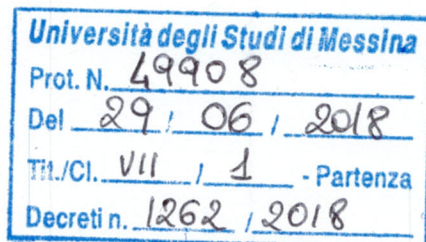 Università degli Studi di Messina
Prot. N. 49908
Del 29 / 06 / 2018
Tit./Cl. VII / 1 - Partenza
Decreti n. 1262 / 2018